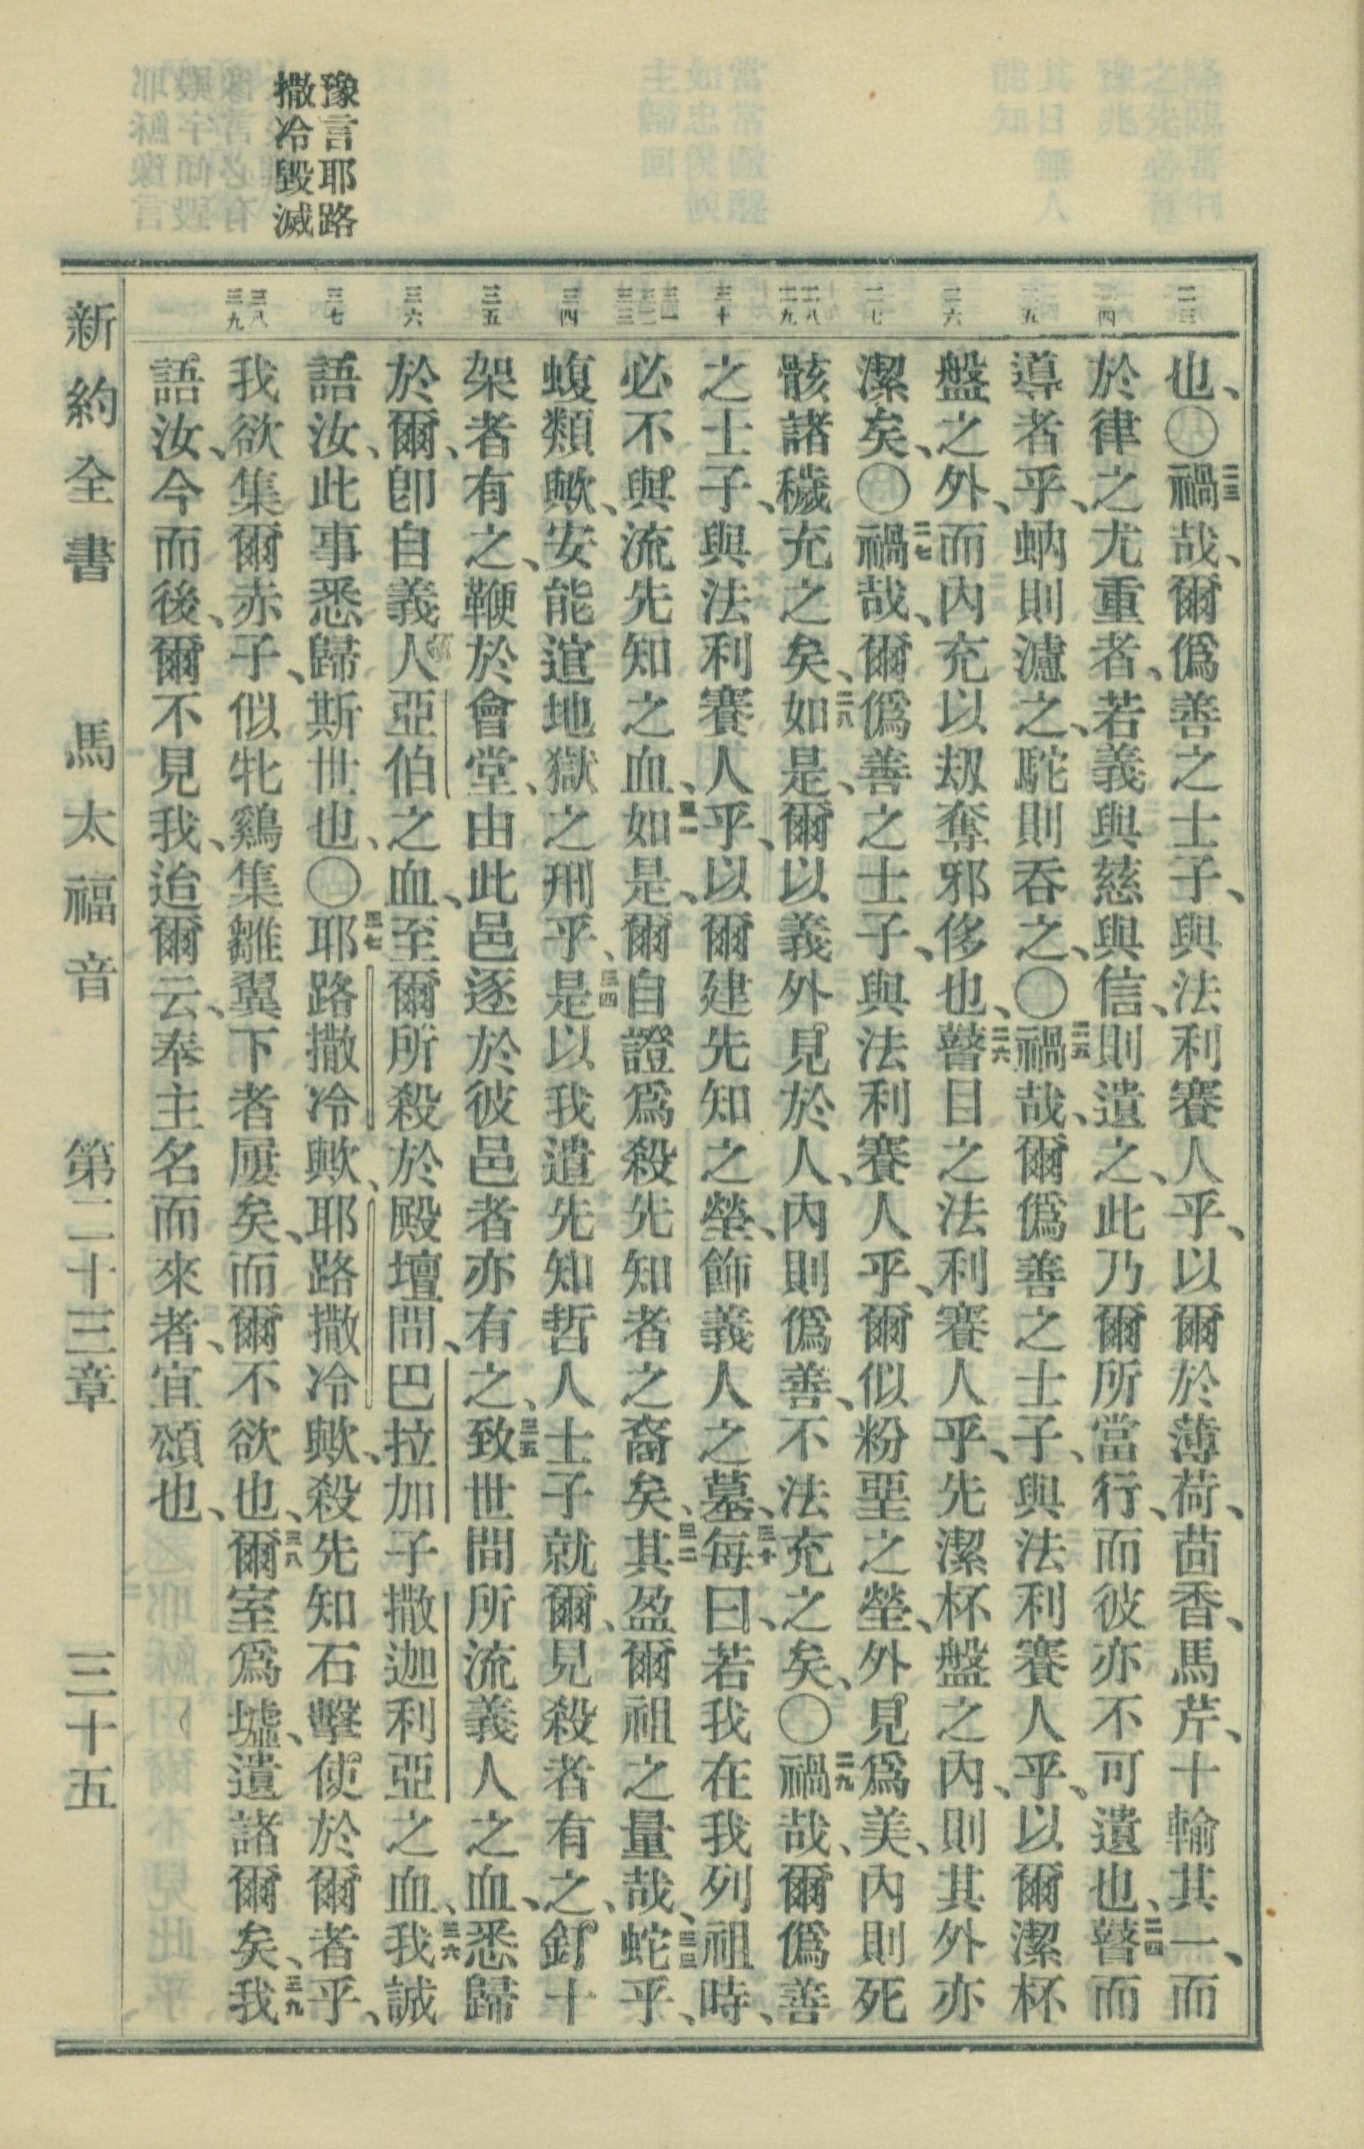 豫言耶路
撒冷毀滅
二三
二四
二五
二六
二七
二八
二九
三十
三一
三二
三三
三四
三五
三六
三七
三八
三九
也、〇二三禍哉、爾僞善之士子、與法利賽人乎、以爾於薄荷、茴香、馬芹、十輸其一、而
於律之尤重者、若義與慈與信、則遺之、此乃爾所當行、而彼亦不可遺也、二四瞽而
導者乎、蚋則濾之、駝則吞之、〇二五禍哉、爾僞善之士子、與法利賽人乎、以爾潔杯
盤之外、而內充以刼奪邪侈也、二六瞽目之法利賽人乎、先潔杯盤之內、則其外亦
潔矣、〇二七禍哉、爾僞善之士子、與法利賽人乎、爾似粉堊之塋、外見爲美、內則死
骸諸穢充之矣、二八如是、爾以義外見於人、內則僞善、不法充之矣、〇二九禍哉、爾僞善
之士子、與法利賽人乎、以爾建先知之塋、飾義人之墓、三十每曰、若我在我列祖時、
必不與流先知之血、三一如是、爾自證爲殺先知者之裔矣、三二其盈爾祖之量哉、三三蛇乎、
蝮類歟、安能逭地獄之刑乎、三四是以我遣先知哲人士子就爾、見殺者有之、釘十
架者有之、鞭於會堂、由此邑逐於彼邑者亦有之、三五致世間所流義人之血、悉歸
於爾、卽自義人亞伯之血、至爾所殺於殿壇間、巴拉加子撒迦利亞之血、三六我誠
語汝、此事悉歸斯世也、〇三七耶路撒冷歟、耶路撒冷歟、殺先知石擊使於爾者乎、
我欲集爾赤子、似牝鷄集雛翼下者屢矣、而爾不欲也、三八爾室爲墟、遺諸爾矣、三九我
語汝、今而後、爾不見我、迨爾云、奉主名而來者、宜頌也、
新約全書　馬太福音　第二十三章　三十五